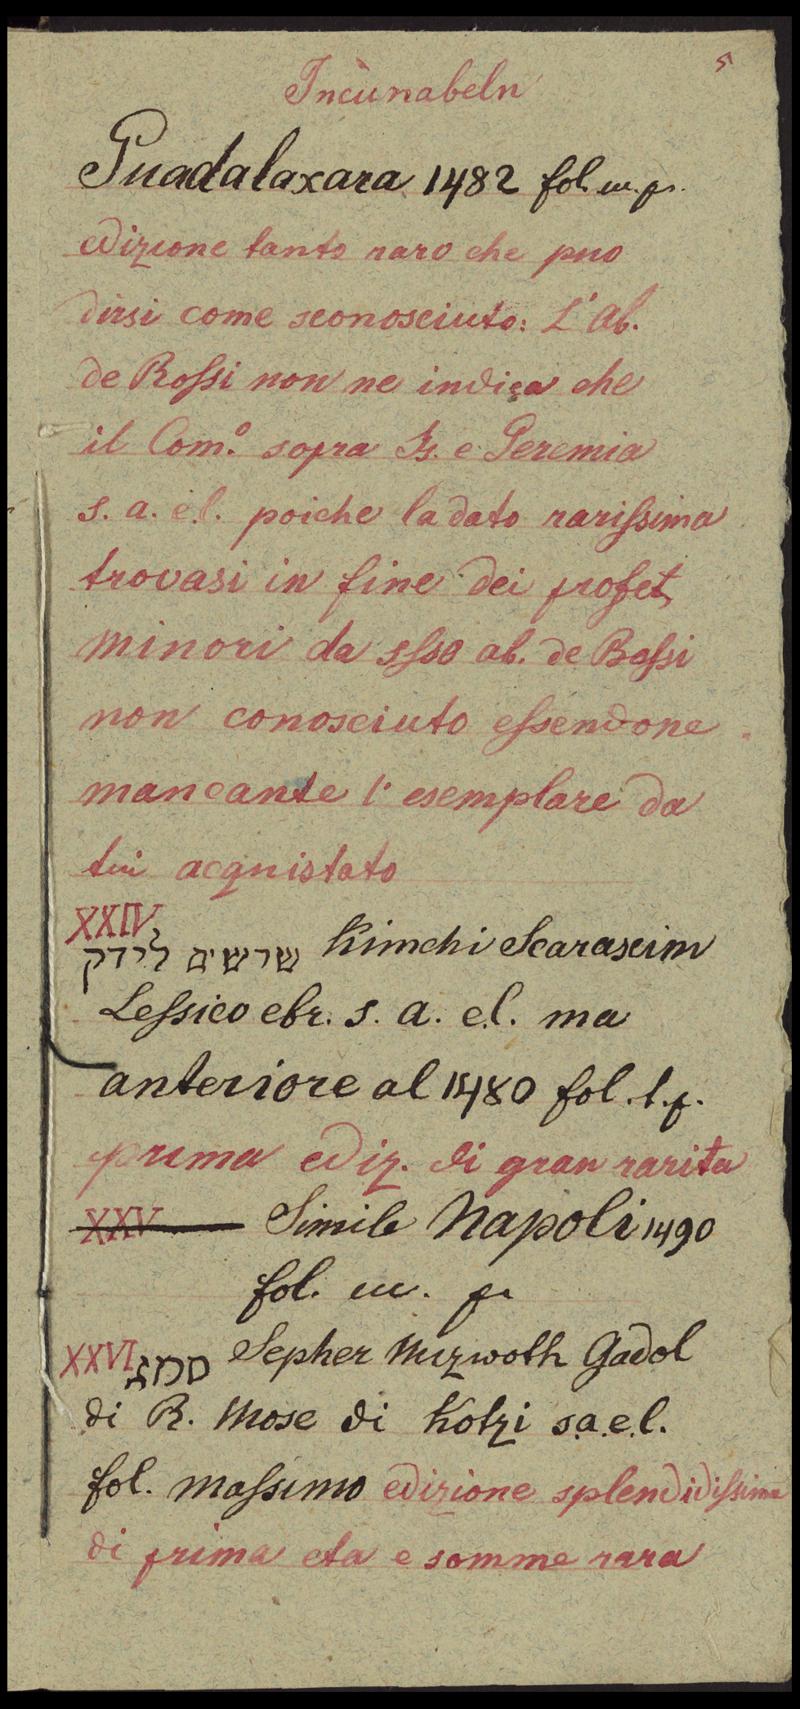 5
Incunabeln
Guadalaxara 1482 fol. m. p.
edizione tanto raro che puo
dirsi come sconosciuto: L'Ab.
de Rossi non ne indica che
il Com.º sopra Is. e Geremia
s. a. e.l. poiche la dato rarissima
trovasi in fine dei profet.
minori da esso ab. de Rossi
non conosciuto essendone
mancante l'esemplare da
lui acquistato
XXIV.
שרשים לידק Kimchi Scarascim
Lessico ebr. s. a. e.l. ma
anteriore al 1480 fol. t. p.
prima ediz. di gran rarita
XXV Simile Napoli 1490
fol. m. p.
XXVI סמג Sepher Mizwoth Gadol
di R. Mose di Kotzi s.a.e.l.
fol. massimo edizione splendidissima
di prima eta e somme rara